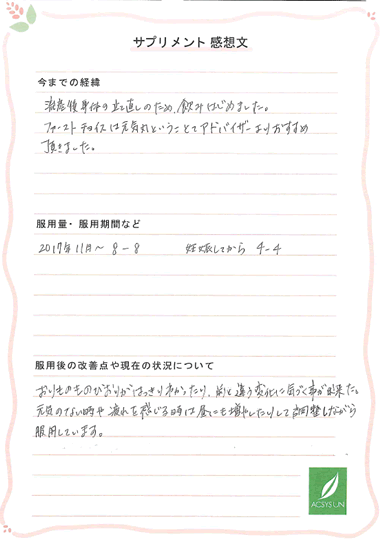 サプリメント 感想文
今までの経緯
流産後身体の立て直しのため、飲みはじめました。
ファーストチョイスは元気丸ということでアドバイザーよりおすすめ
頂きました。
服用量・服用期間など
2017年11月～ 8－8 妊娠してから 4－4
服用後の改善点や現在の状況について
おりもののびおりがはっきりわかったり、前と違う変化に気づく事が出来た。
元気のない時や疲れを感じる時は昼にも増やしたりして調整しながら
服用しています。
ACSYSUN